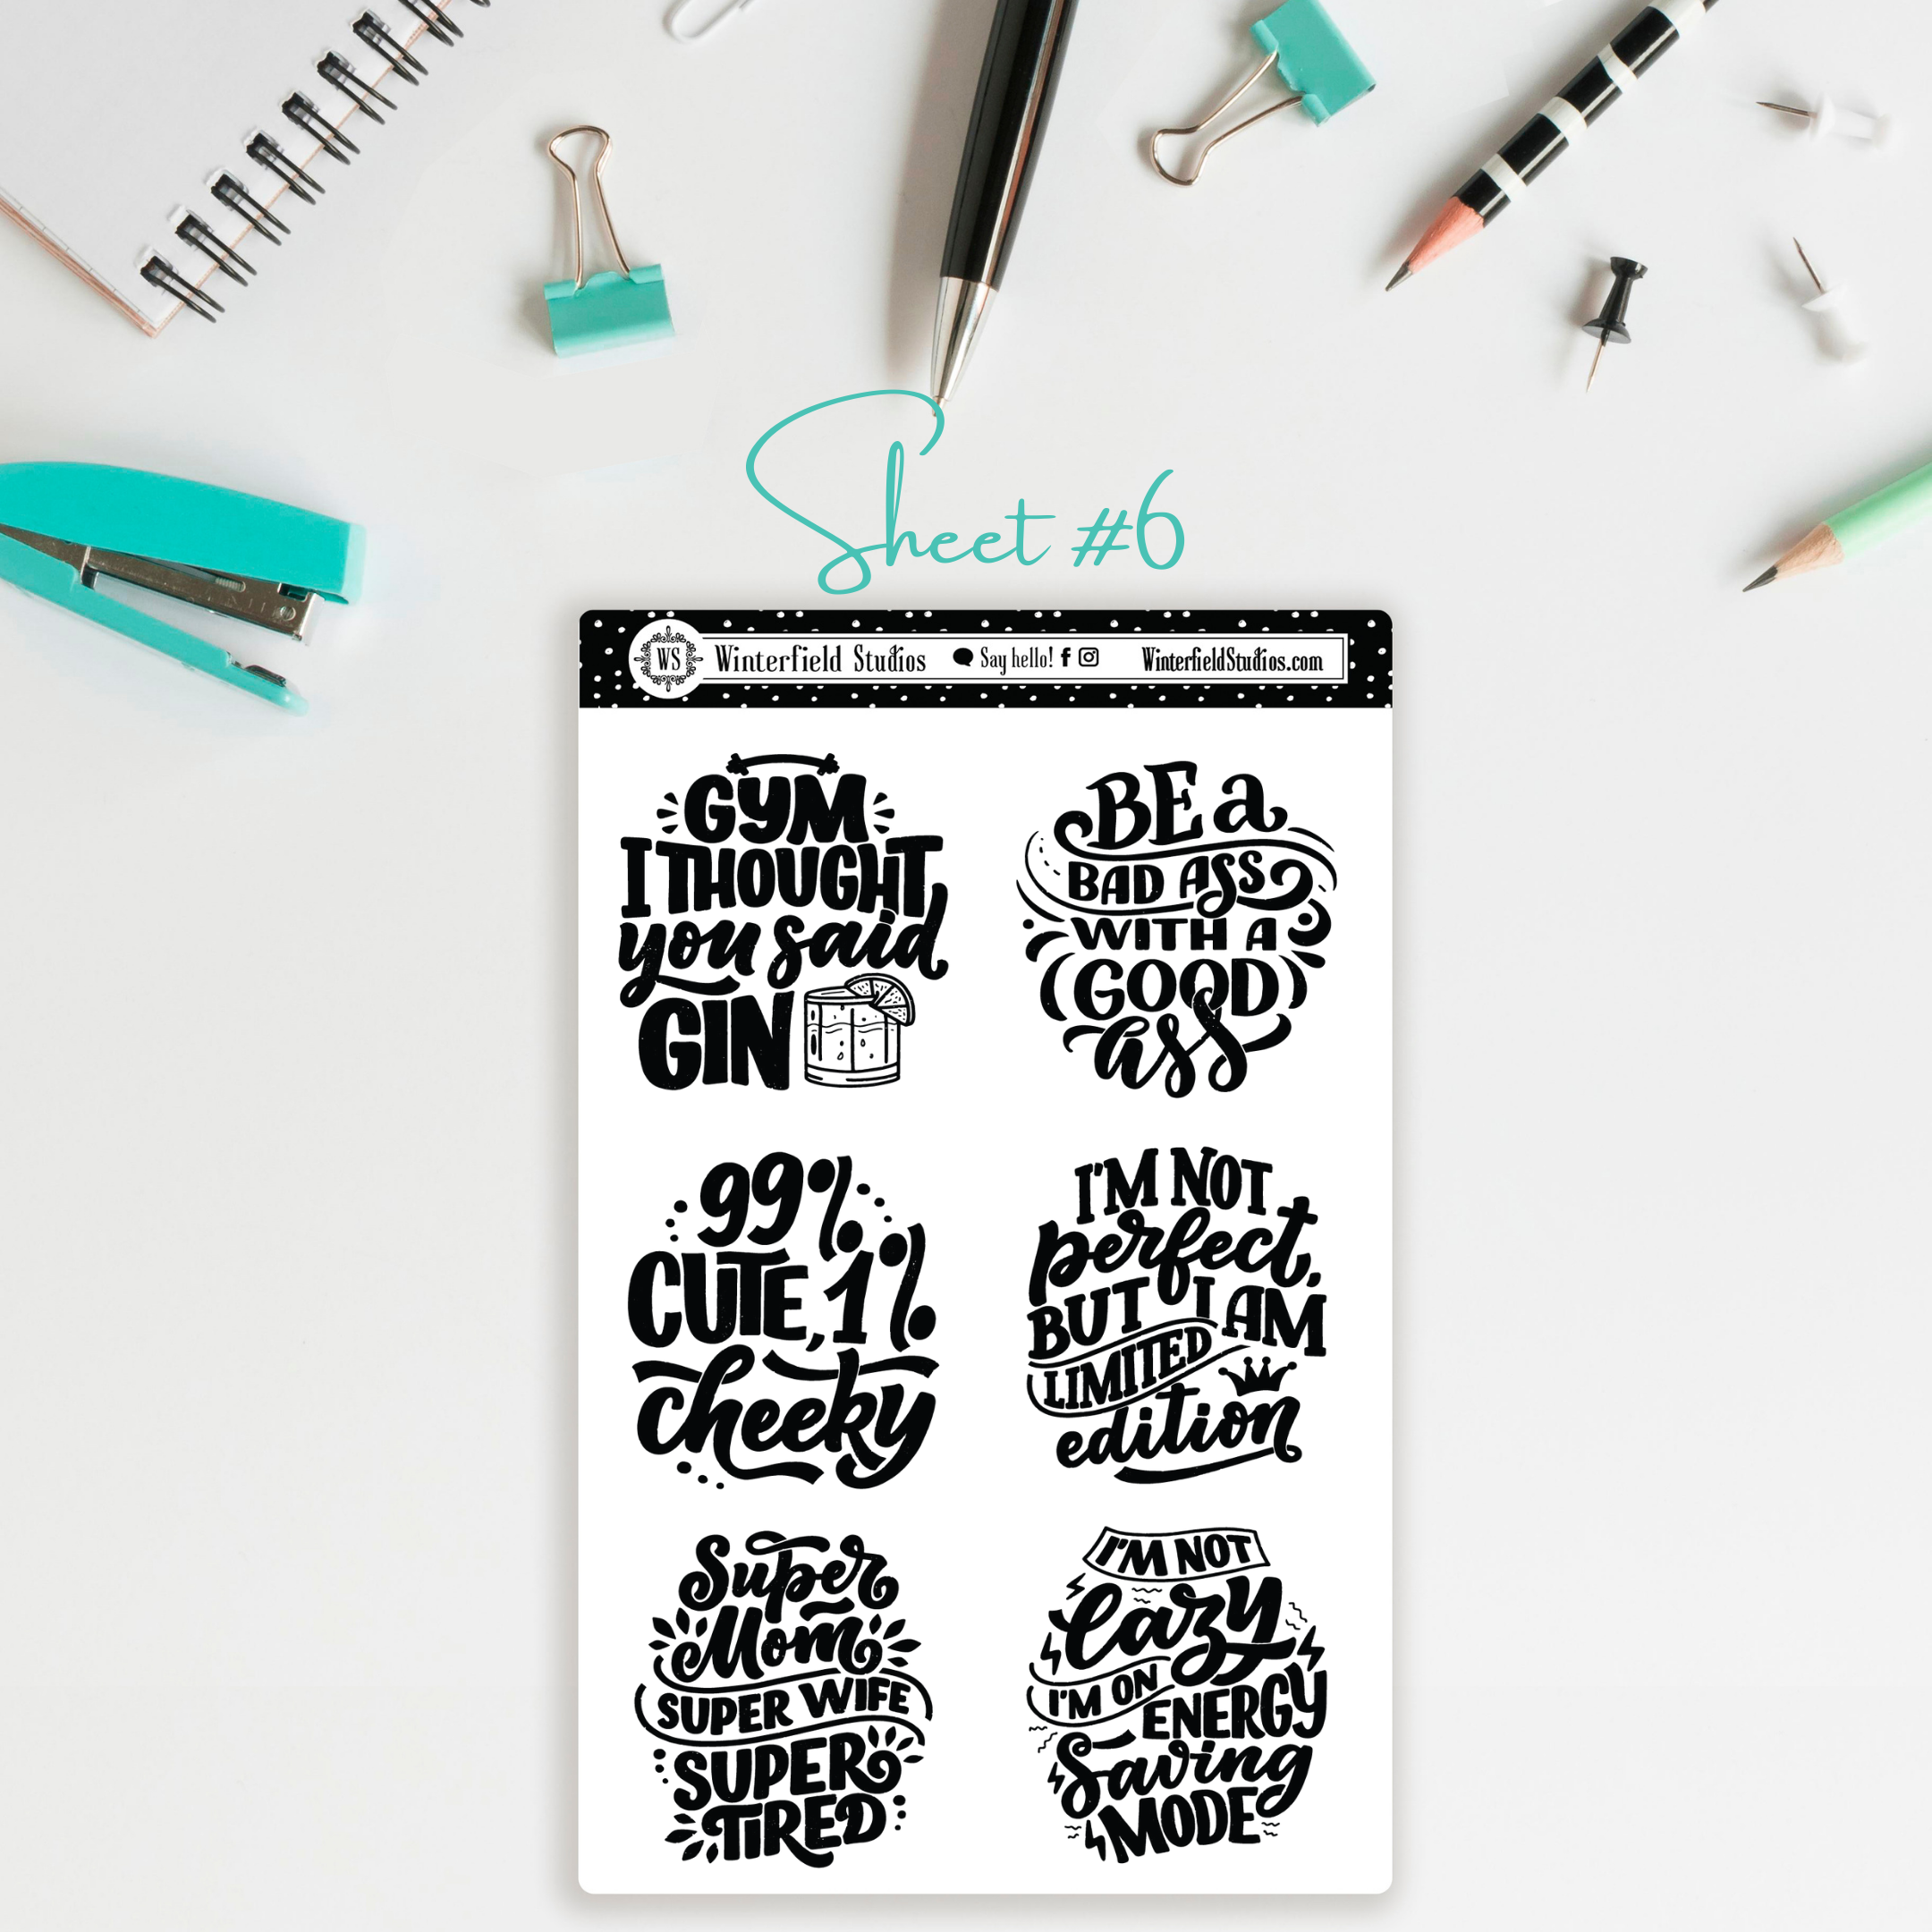 Sheet #6
WS Winterfield Studios Say hello! WinterfieldStudios.com
GYM
I THOUGHT
you said
GIN
BE a
BAD ASS
WITH A
(GOOD)
ass
99%
CUTE, 1%
cheeky
I'M NOT
perfect,
BUT I AM
LIMITED
edition
Super
Mom
SUPER WIFE
SUPER
TIRED
I'M NOT
lazy
I'M ON
ENERGY
Saving
MODE